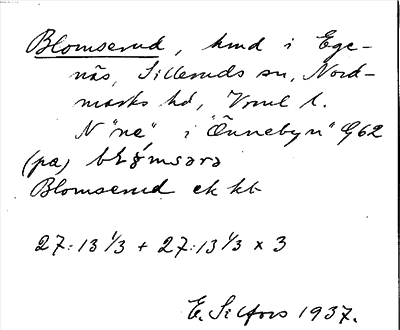 Blomserud, hmd i Ege-
näs, Silleruds sn, Nord-
marks hd, Vrml l.
N "ne" i "Önnebyn" G62
(pa)
Blomserud ek kb
27:13 1/3 + 27:13 1/3 x 3
E. Silfors 1937.